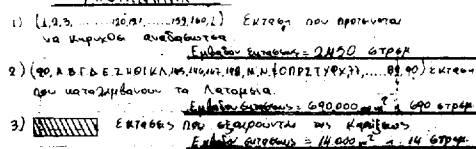 1) (1,2,3, ........120,121, ......159,160,1) Έκταση που προτείνεται
να κηρυχθεί αναδασωτέα
Εμβαδόν εκτάσεως = 2450 στρεμ
2) (90, Α, Β, Γ, Δ, Ε, Ζ, Η, Θ, Ι, Κ, Λ, 145, 146, 147, 148, Μ, Ν, Ξ, Ο, Π, Ρ, Σ, Τ, Υ, Φ, Χ, 77, .... 89, 90) έκταση
που καταλαμβάνουν τα Λατομεία.
Εμβαδόν εκτάσεως = 690.000 m² ή 690 στρεμ.
3) Εκτάσεις που εξαιρούνται της κηρύξεως
Εμβαδόν εκτάσεως = 14.000 m² ή 14 στρεμ.